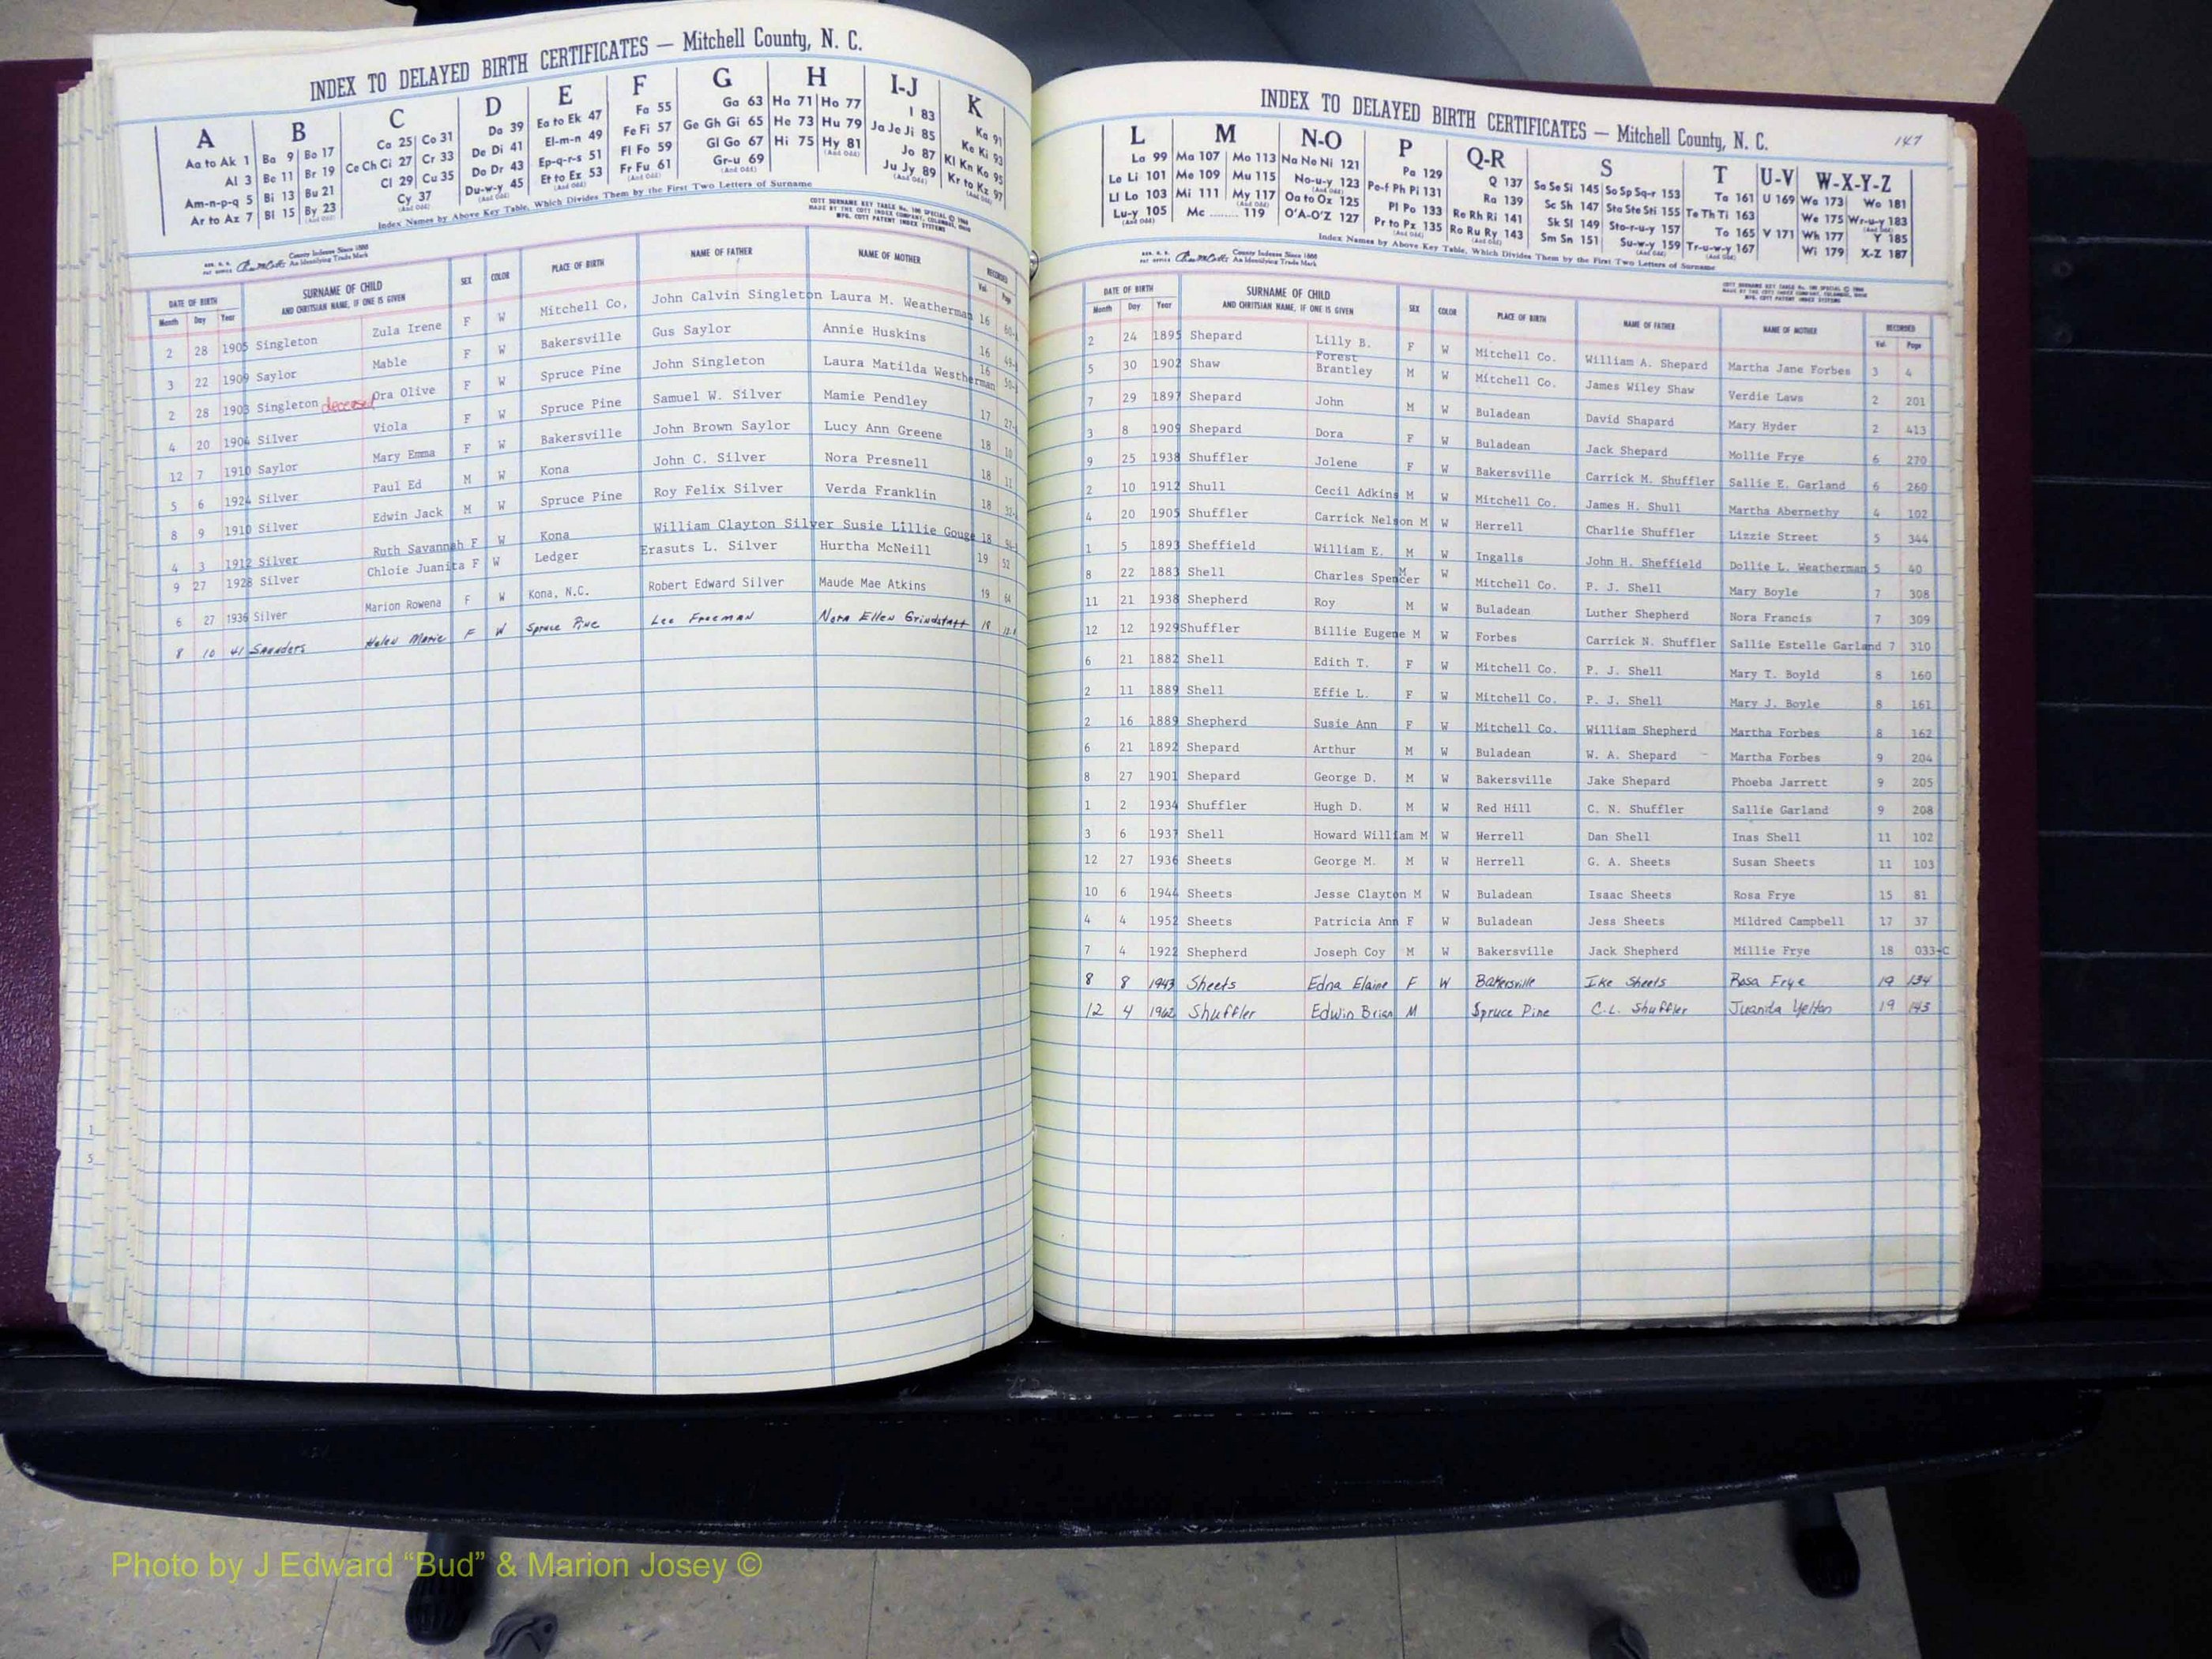 INDEX TO DELAYED BIRTH CERTIFICATES — Mitchell County, N. C.
A B C D E F G H I-J K
Aa to Ak 1 Ba 9 Bo 17 Ca 25 Co 31 Da 39 Ea to Ek 47 Fa 55 Ga 63 Ha 71 Ho 77 I 83 Ka 91
Al 3 Be 11 Br 19 Ce Ch Ci 27 Cr 33 De Di 41 El-m-n 49 Fe Fi 57 Ge Gh Gi 65 He 73 Hu 79 Ja Je Ji 85 Ke Ki 93
Am-n-p-q 5 Bi 13 Bu 21 Cl 29 Cu 35 Do Dr 43 Ep-q-r-s 51 Fl Fo 59 Gl Go 67 Hi 75 Hy 81 Jo 87 Kl Kn Ko 95
Ar to Az 7 Bl 15 By 23 Cy 37 Du-w-y 45 Et to Ez 53 Fr Fu 61 Gr-u 69 Ju Jy 89 Kr to Kz 97
Index Names by Above Key Table, Which Divides Them by the First Two Letters of Surname
County Indexes Since 1888
An Identifying Trade Mark
DATE OF BIRTH SURNAME OF CHILD SEX COLOR PLACE OF BIRTH NAME OF FATHER NAME OF MOTHER RECORDED
Month Day Year AND CHRITSIAN NAME, IF ONE IS GIVEN Vol. Page
2 28 1905 Singleton Zula Irene F W Mitchell Co, John Calvin Singleton Laura M. Weatherman 16
3 22 1909 Saylor Mable F W Bakersville Gus Saylor Annie Huskins 16
2 28 1903 Singleton deceased Ora Olive F W Spruce Pine John Singleton Laura Matilda Westherman 16
4 20 1904 Silver Viola F W Spruce Pine Samuel W. Silver Mamie Pendley 17
12 7 1910 Saylor Mary Emma F W Bakersville John Brown Saylor Lucy Ann Greene 18 10
5 6 1924 Silver Paul Ed M W Kona John C. Silver Nora Presnell 18 11
8 9 1910 Silver Edwin Jack M W Spruce Pine Roy Felix Silver Verda Franklin 18
4 3 1912 Silver Ruth Savannah F W Kona William Clayton Silver Susie Lillie Gouge 18
9 27 1928 Silver Chloie Juanita F W Ledger Erasuts L. Silver Hurtha McNeill 19 52
6 27 1936 Silver Marion Rowena F W Kona, N.C. Robert Edward Silver Maude Mae Atkins 19 64
8 10 41 Saunders Helen Marie F W Spruce Pine Lee Freeman Nora Ellen Grindstaff
INDEX TO DELAYED BIRTH CERTIFICATES — Mitchell County, N. C. 147
L M N-O P Q-R S T U-V W-X-Y-Z
La 99 Ma 107 Mo 113 Na Ne Ni 121 Pa 129 Q 137 Sa Se Si 145 So Sp Sq-r 153 Ta 161 U 169 Wa 173 Wo 181
Le Li 101 Me 109 Mu 115 No-u-y 123 Pe-f Ph Pi 131 Ra 139 Sc Sh 147 Sta Ste Sti 155 Te Th Ti 163 We 175 Wr-u-y 183
Ll Lo 103 Mi 111 My 117 Oa to Oz 125 Pl Po 133 Re Rh Ri 141 Sk Sl 149 Sto-r-u-y 157 To 165 V 171 Wh 177 Y 185
Lu-y 105 Mc 119 O'A-O'Z 127 Pr to Pz 135 Ro Ru Ry 143 Sm Sn 151 Su-w-y 159 Tr-u-w-y 167 Wi 179 X-Z 187
Index Names by Above Key Table, Which Divides Them by the First Two Letters of Surname
County Indexes Since 1888
An Identifying Trade Mark
DATE OF BIRTH SURNAME OF CHILD SEX COLOR PLACE OF BIRTH NAME OF FATHER NAME OF MOTHER RECORDED
Month Day Year AND CHRITSIAN NAME, IF ONE IS GIVEN Vol. Page
2 24 1895 Shepard Lilly B. F W Mitchell Co. William A. Shepard Martha Jane Forbes 3 4
5 30 1902 Shaw Forest Brantley M W Mitchell Co. James Wiley Shaw Verdie Laws 2 201
7 29 1897 Shepard John M W Buladean David Shapard Mary Hyder 2 413
3 8 1909 Shepard Dora F W Buladean Jack Shepard Mollie Frye 6 270
9 25 1938 Shuffler Jolene F W Bakersville Carrick M. Shuffler Sallie E. Garland 6 260
2 10 1912 Shull Cecil Adkins M W Mitchell Co. James H. Shull Martha Abernethy 4 102
4 20 1905 Shuffler Carrick Nelson M W Herrell Charlie Shuffler Lizzie Street 5 344
1 5 1893 Sheffield William E. M W Ingalls John H. Sheffield Dollie L. Weatherman 5 40
8 22 1883 Shell Charles Spencer M W Mitchell Co. P. J. Shell Mary Boyle 7 308
11 21 1938 Shepherd Roy M W Buladean Luther Shepherd Nora Francis 7 309
12 12 1929 Shuffler Billie Eugene M W Forbes Carrick N. Shuffler Sallie Estelle Garland 7 310
6 21 1882 Shell Edith T. F W Mitchell Co. P. J. Shell Mary T. Boyld 8 160
2 11 1889 Shell Effie L. F W Mitchell Co. P. J. Shell Mary J. Boyle 8 161
2 16 1889 Shepherd Susie Ann F W Mitchell Co. William Shepherd Martha Forbes 8 162
6 21 1892 Shepard Arthur M W Buladean W. A. Shepard Martha Forbes 9 204
8 27 1901 Shepard George D. M W Bakersville Jake Shepard Phoeba Jarrett 9 205
1 2 1934 Shuffler Hugh D. M W Red Hill C. N. Shuffler Sallie Garland 9 208
3 6 1937 Shell Howard William M W Herrell Dan Shell Inas Shell 11 102
12 27 1936 Sheets George M. M W Herrell G. A. Sheets Susan Sheets 11 103
10 6 1944 Sheets Jesse Clayton M W Buladean Isaac Sheets Rosa Frye 15 81
4 4 1952 Sheets Patricia Ann F W Buladean Jess Sheets Mildred Campbell 17 37
7 4 1922 Shepherd Joseph Coy M W Bakersville Jack Shepherd Millie Frye 18 033-C
8 8 1943 Sheets Edna Elaine F W Bakersville Ike Sheets Rosa Frye 19 134
12 4 1962 Shuffler Edwin Brian M Spruce Pine C.L. Shuffler Juanida Yelton 19 143
Photo by J Edward “Bud” & Marion Josey ©